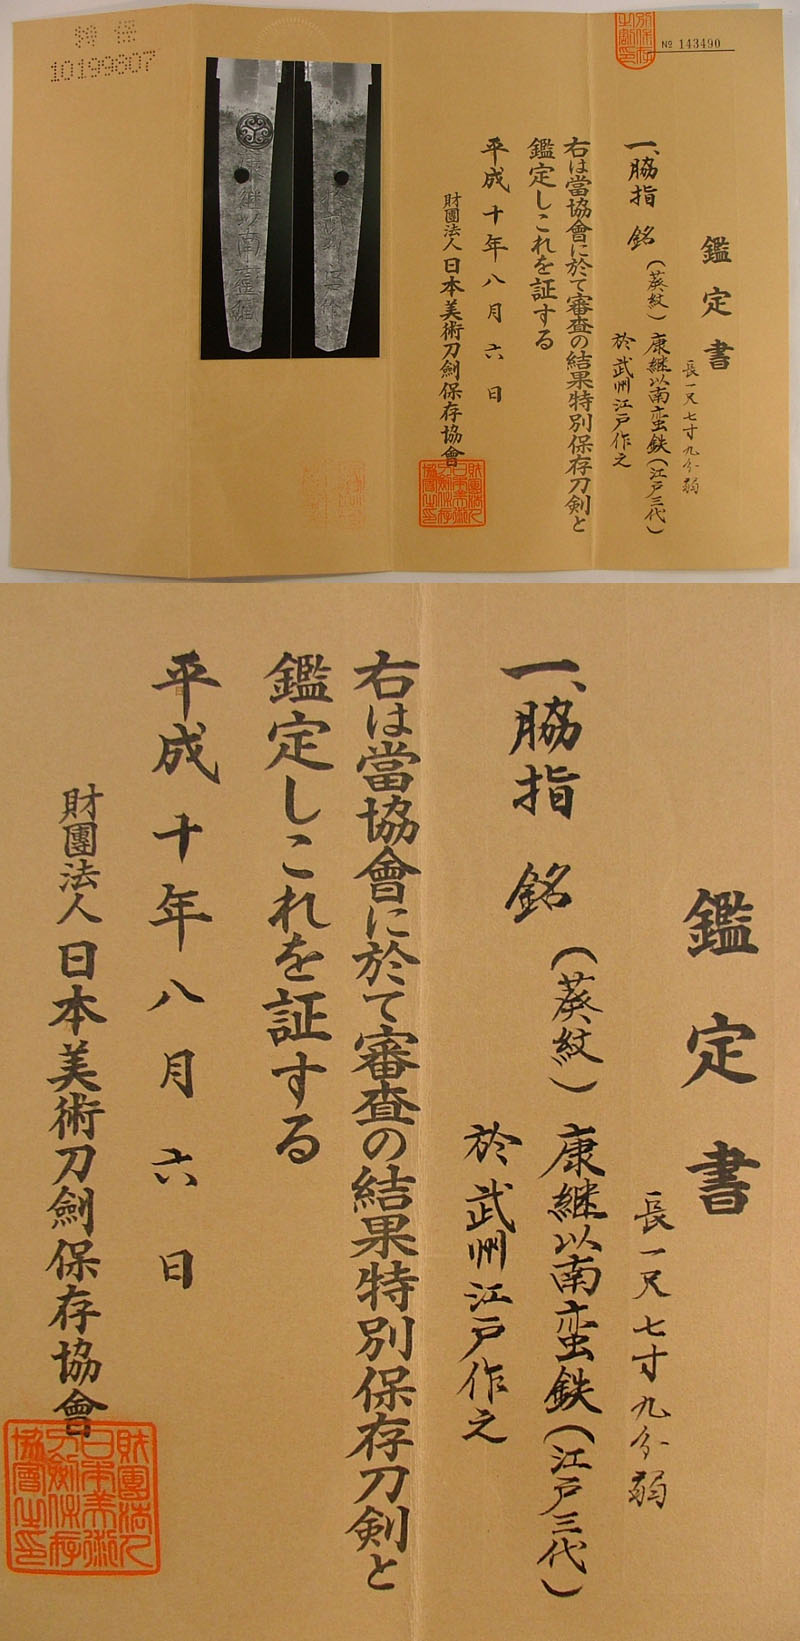 特保
10199807
No 143490
鑑定書
長一尺七寸九分弱
一、脇指 銘 (葵紋) 康継以南蛮鉄(江戸三代)
於武州江戸作之
右は當協會に於て審査の結果特別保存刀剣と
鑑定しこれを証する
平成十年八月六日
財團法人日本美術刀劍保存協會
財團法人
日本美術
刀劍保存
協會之印
鑑定書
長一尺七寸九分弱
一、脇指 銘 (葵紋) 康継以南蛮鉄(江戸三代)
於武州江戸作之
右は當協會に於て審査の結果特別保存刀剣と
鑑定しこれを証する
平成十年八月六日
財團法人日本美術刀劍保存協會
財團法人
日本美術
刀劍保存
協會之印